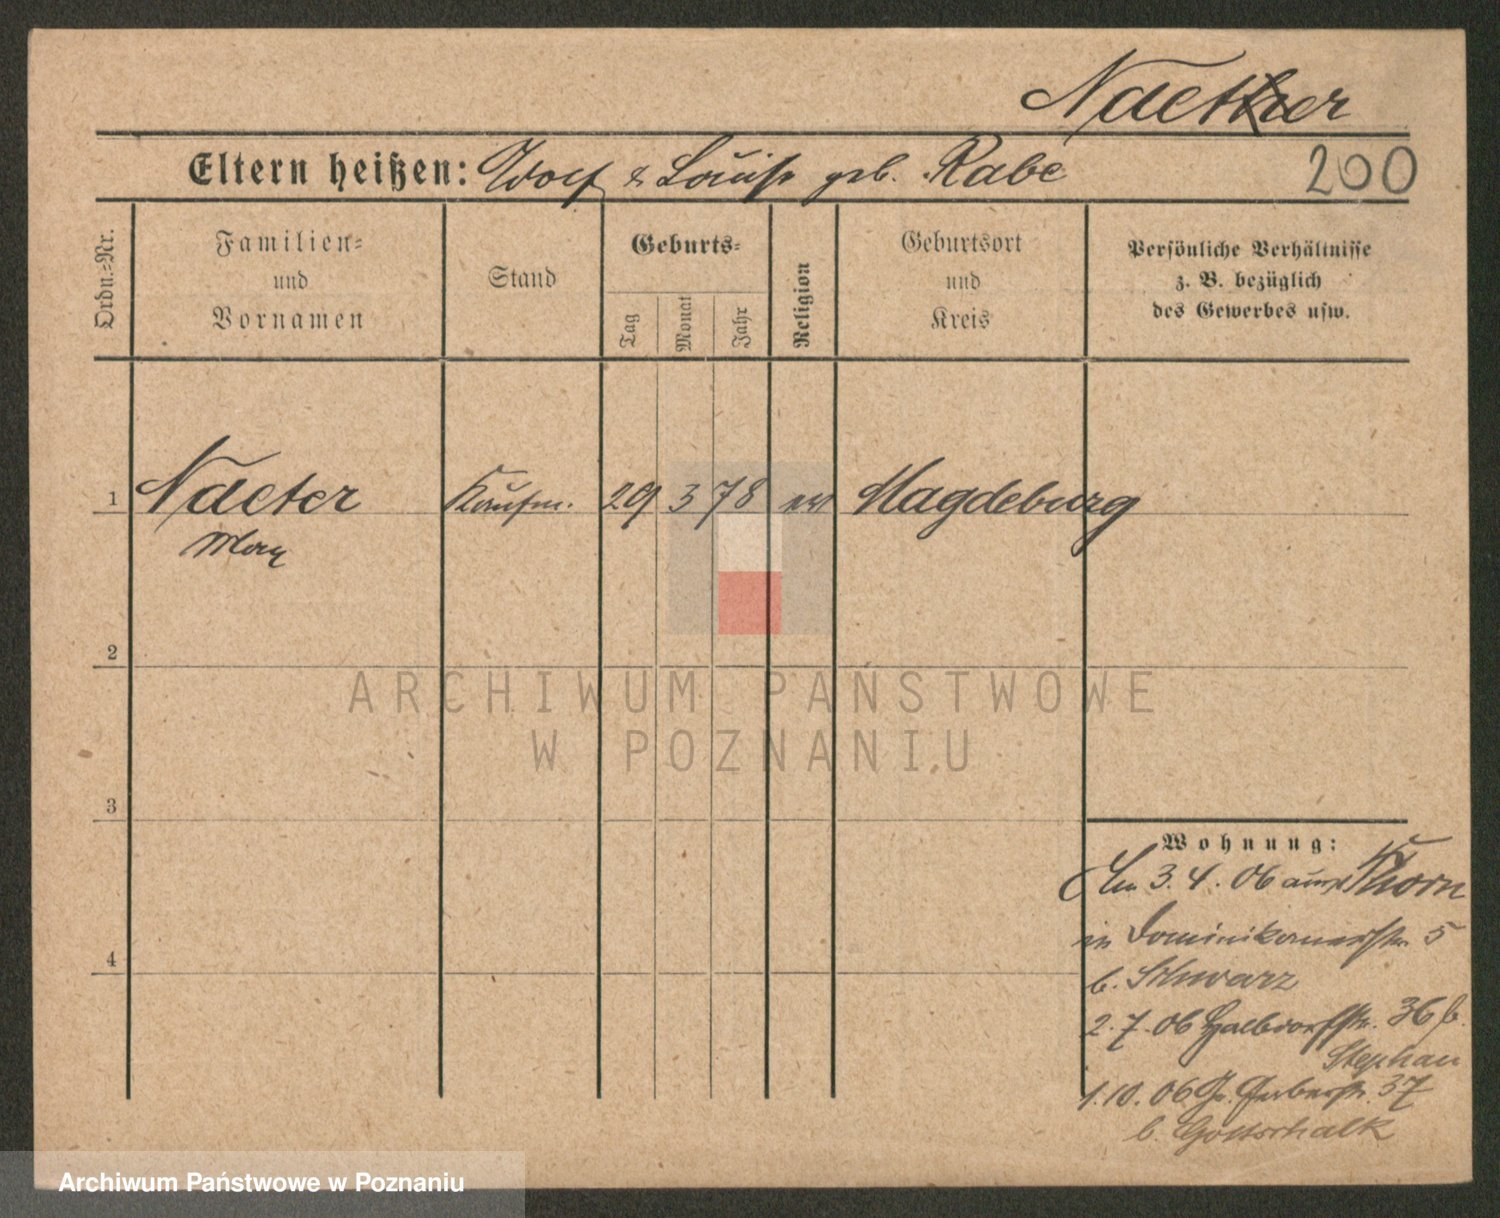 Naether
Eltern heißen: Wolf & Louise geb. Rabe
200
Ordn.-Nr.
Familien-
und
Vornamen
Stand
Geburts-
Tag
Monat
Jahr
Religion
Geburtsort
und
Kreis
Persönliche Verhältnisse
z. B. bezüglich
des Gewerbes usw.
1 Naeter Kaufm. 29 3 78 ev Magdeburg
Max
2
3
4
Wohnung:
Am 3.4.06 aus Thorn
in Dominikanerstr. 5
b. Schwarz
2.7.06 Halbdorfstr. 36 b.
Stephan
1.10.06 Gr. Gerberstr. 37
b. Gottschalk
ARCHIWUM PAŃSTWOWE
W POZNANIU
Archiwum Państwowe w Poznaniu